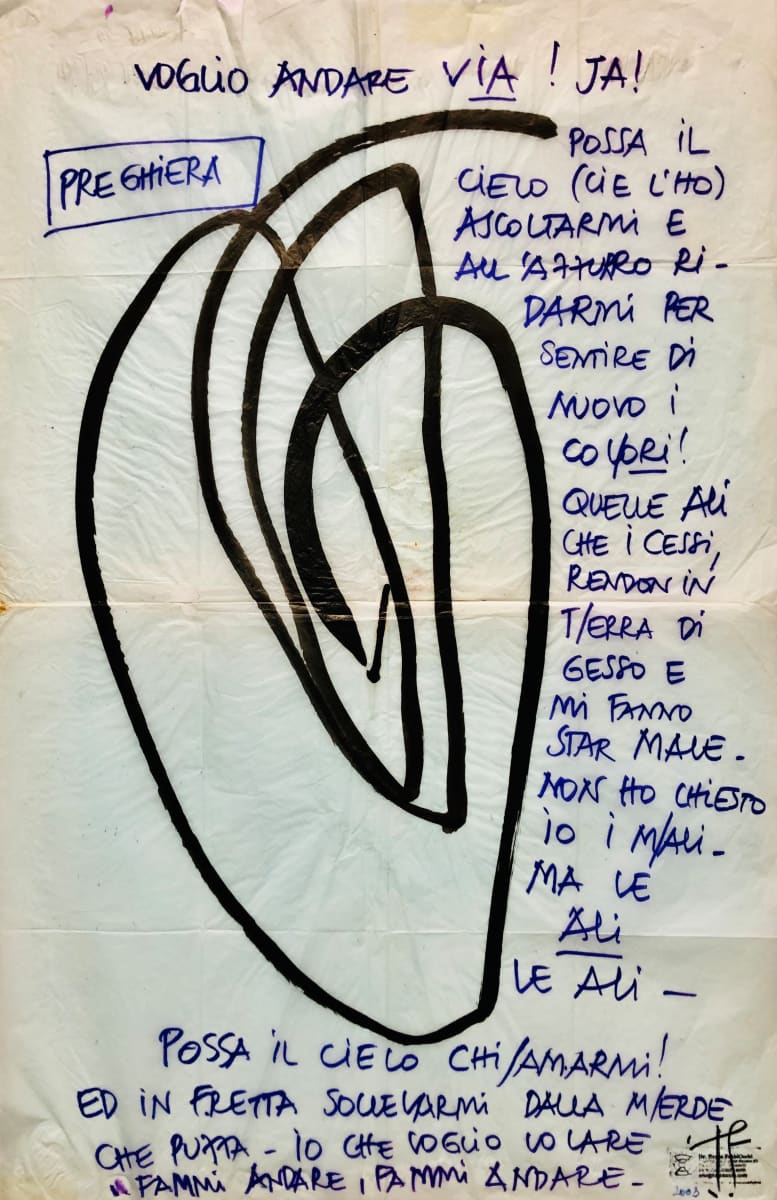 VOGLIO ANDARE VIA ! JA!
PREGHIERA
POSSA IL
CIELO (CIE L'HO)
ASCOLTARMI E
ALL'AZZURRO RI-
DARMI PER
SENTIRE DI
NUOVO I
CO/ORI!
QUELLE ALI
CHE I CESSI,
RENDON IN
T/ERRA DI
GESSO E
MI FANNO
STAR MALE-
NON HO CHIESTO
IO I M/ALI-
MA LE
ALI
LE ALI -
POSSA IL CIELO CHI/AMARMI!
ED IN FRETTA SOLLEVARMI DALLA M/ERDE
CHE PUZZA - IO CHE VOGLIO VOLARE
"FAMMI ANDARE, FAMMI ANDARE-
2003